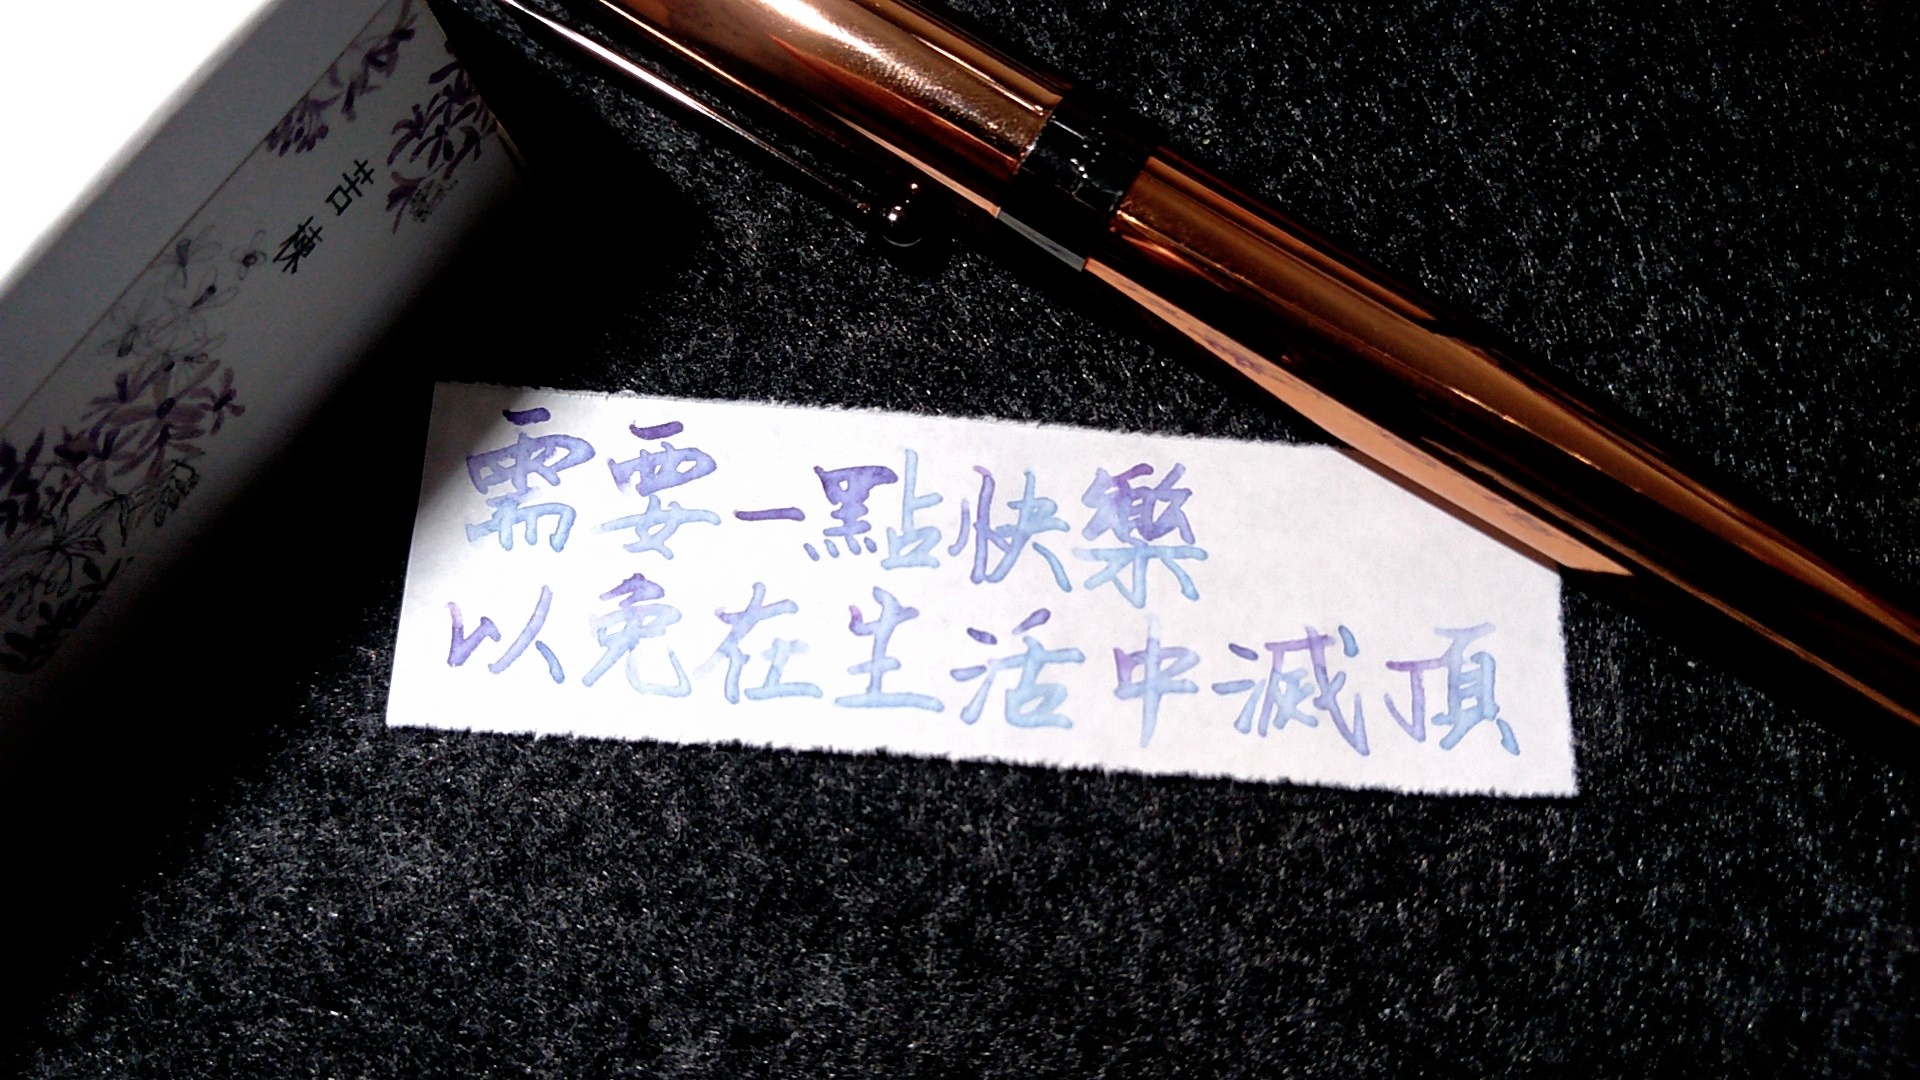 需要一點快樂
以免在生活中滅頂